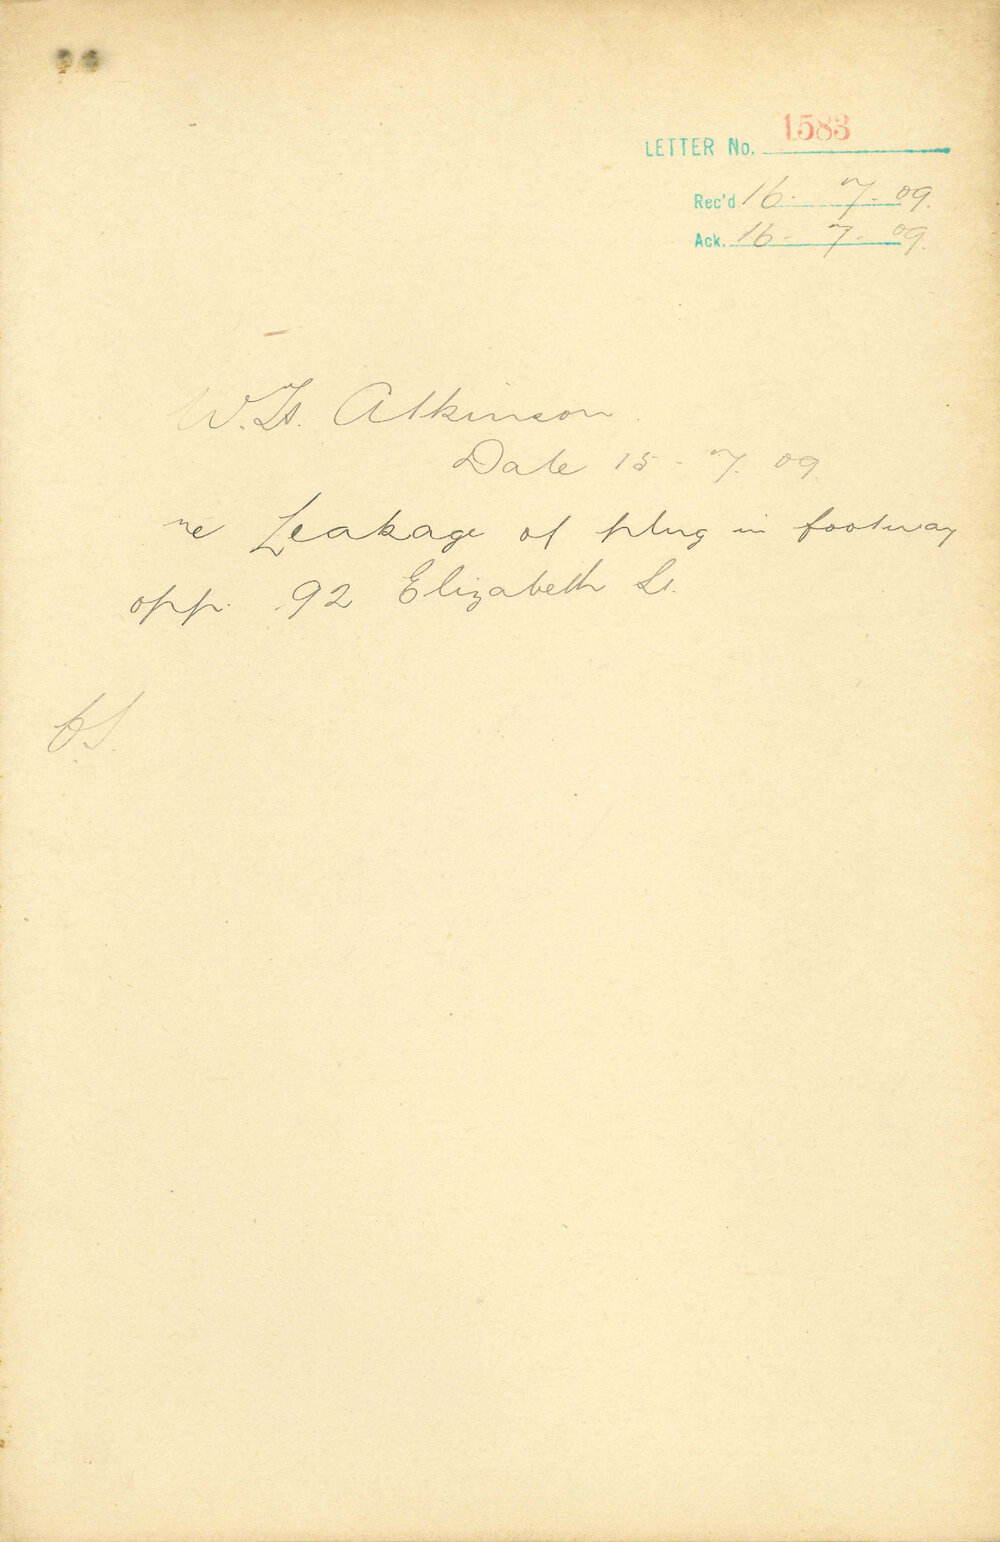 LETTER No. 1583
Rec'd 16. 7. 09.
Ack. 16 - 7. 09.
Atkinson
Date 15 - 7. 09.
re Leakage of plug in footway
opp. 92 Elizabeth St.